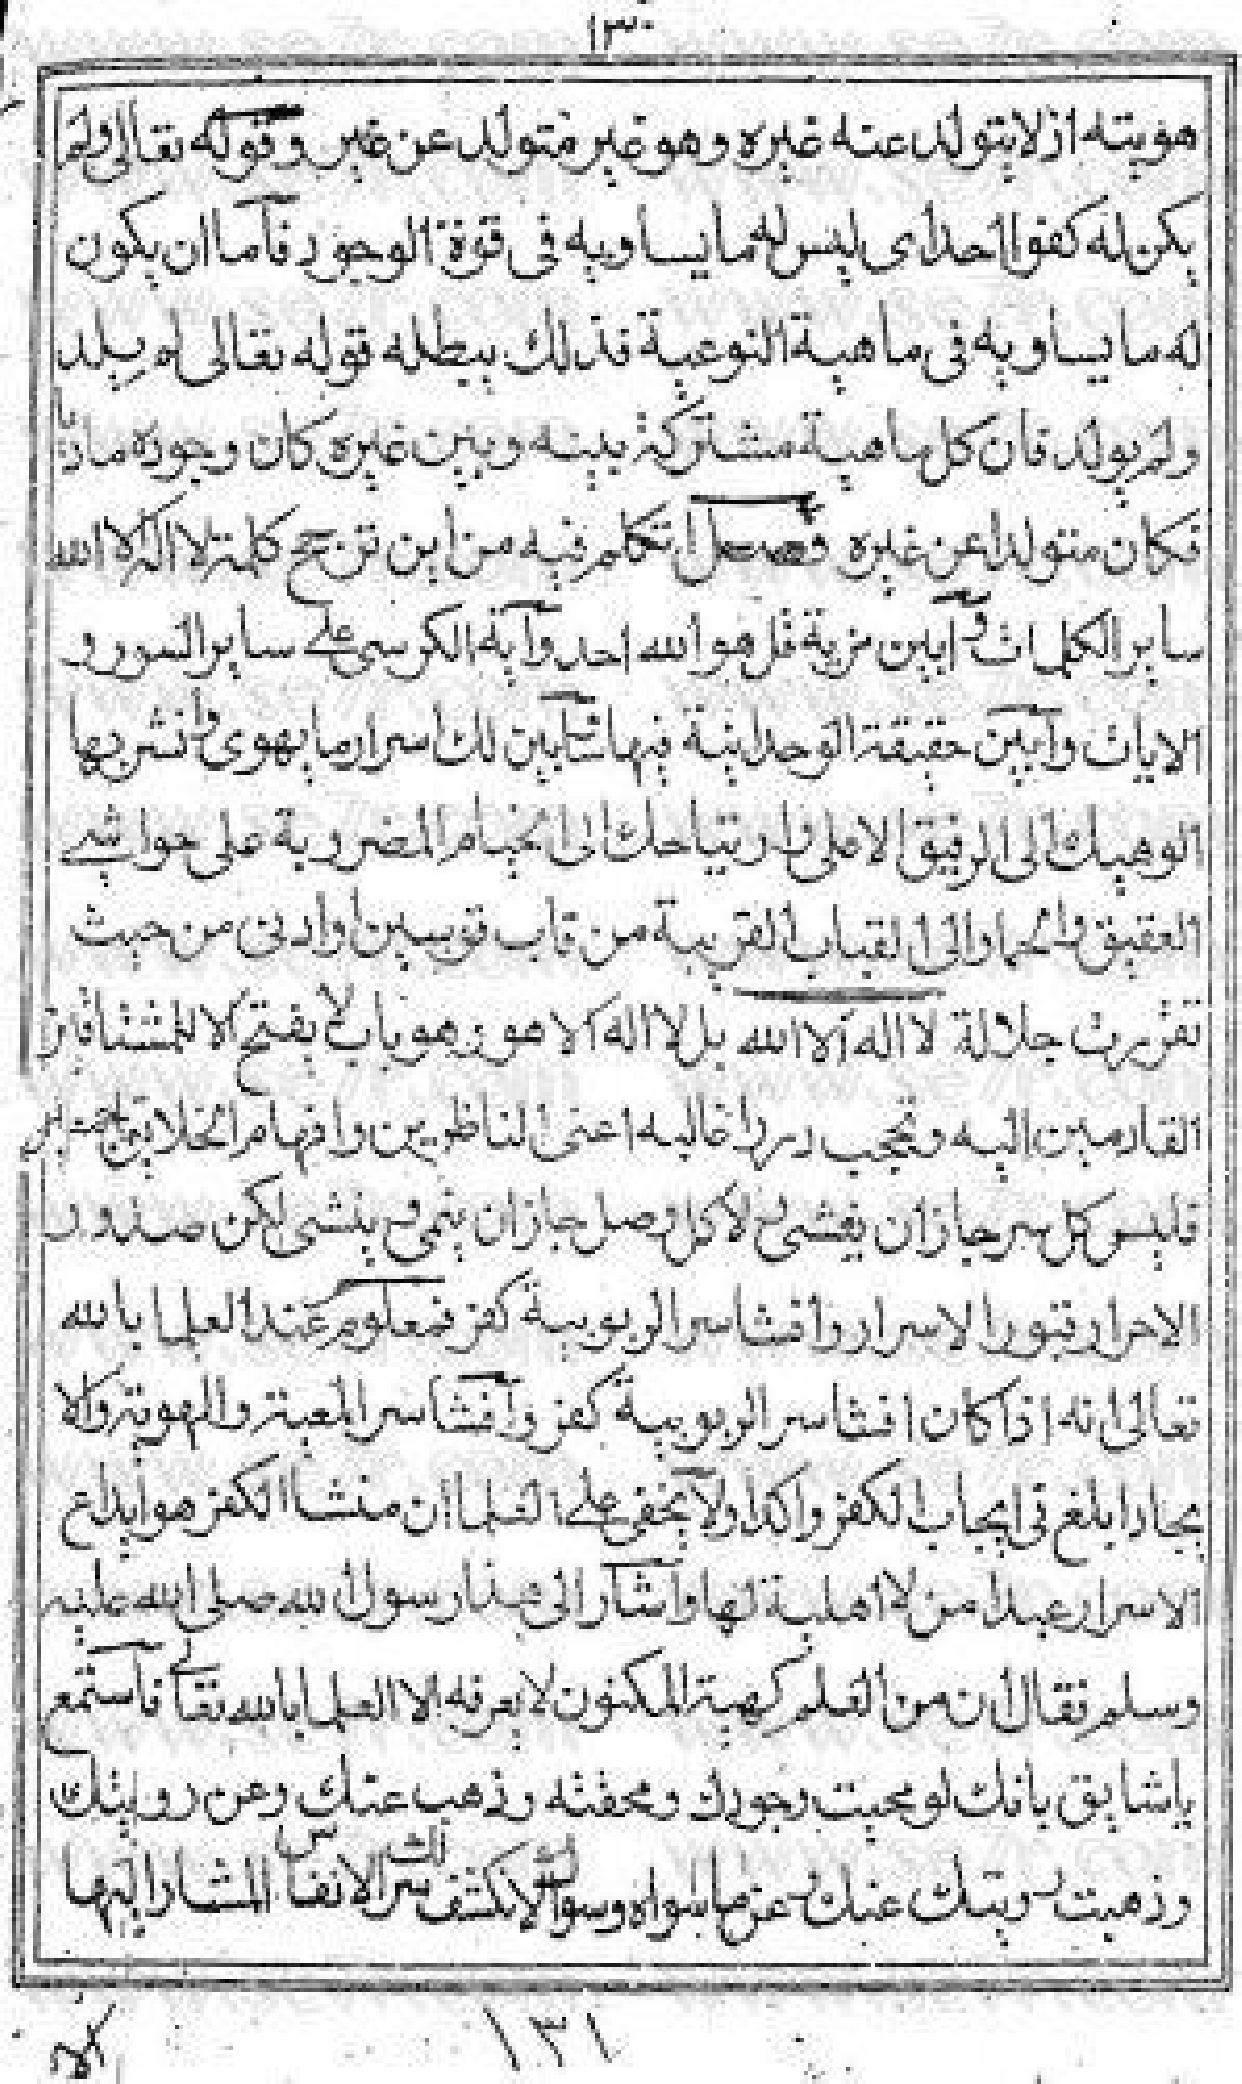 ١٣٠
هويته اذ لا يتولد عنه غيره وهو غير متولد عن غير وقوله تعالى ولم
يكن له كفوا احد اى ليس له ما يساويه فى قوة الوجود فاما ان يكون
له ما يساويه فى ماهية النوعية فذلك يبطله قوله تعالى لم يلد
ولم يولد فان كل ماهية مشتركة بينه وبين غيره كان وجوده ماديا
فكان متولدا عن غيره فصل اتكلم فيه من اين ترجح كلمة لا اله الا الله
ساير الكلمات وابين مزية قل هو الله احد وآية الكرسى على ساير السور و
الايات وابين حقيقة الوحدانية فيها فابين لك اسرار ما يهوى وانشر بها
الوهيك الى الرفيق الاعلى وارتياحك الى الخيام المضروبة على حواشى
العقيق والى القباب القريبة من قاب قوسين او ادنى من حيث
تقررت جلالة لا اله الا الله بل لا اله الا هو وهو باب لا يفتح الا للمشتاقين
القادمين اليه وتحجب دررا غالبه اعنى الناظرين وافهام الخلايق اجمعين
فليس كل سر جاز ان يفشى ولا كل وصل جاز ان ينمى وينشى لكن صدور
الاحرار قبور الاسرار وافشا سر الربوبية كفر فمعلوم عند العلما بالله
تعالى انه اذا كان افشا سر الربوبية كفر وافشا سر المعية والهوية والا
يجاد ابلغ فى ايجاب الكفر واكد ولا يخفى على العلما ان منشا الكفر هو ايداع
الاسرار عند من لا اهلية لها واشار الى هذا رسول الله صلى الله عليه
وسلم فقال ان من العلم كهية المكنون لا يعرفه الا العلما بالله تعالى فاستمع
يا شايق بانك لو محيت وجودك ومحقته وذهب عنك وعن روايتك
وذهبت عنك عن ما سواه وسواك لانكشف لك سر الانفاس المشار اليها
١٣١
كلا